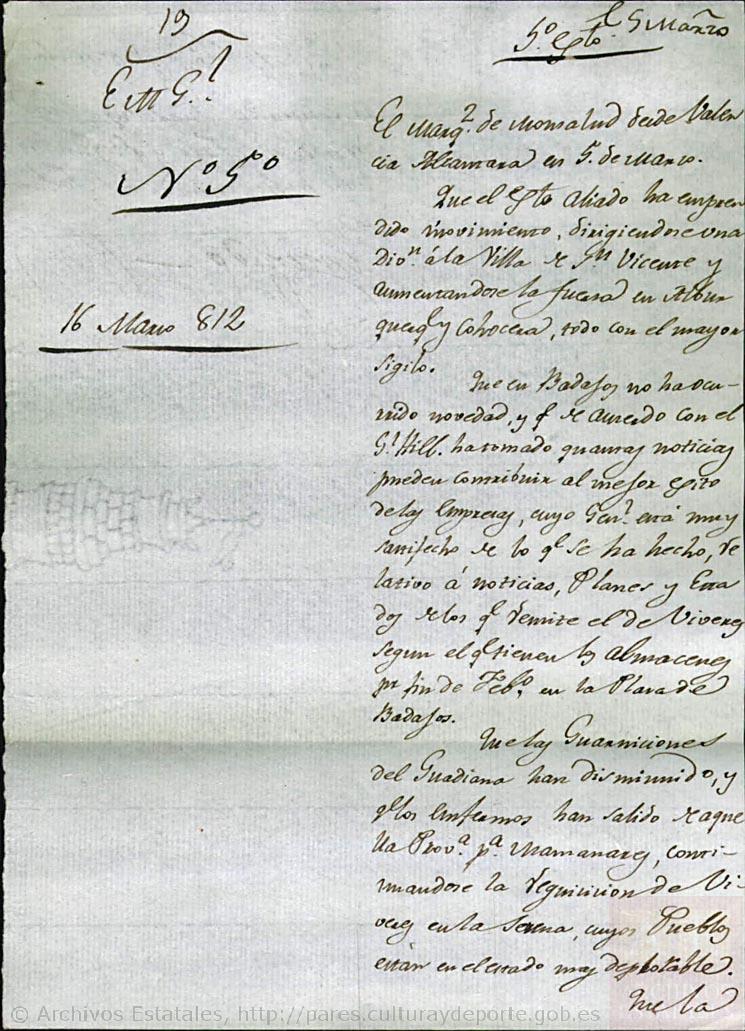 19
E M G.l
N.o 5.o
16 Marzo 812
5.o Exto. 5 Marzo
El Marq.z de Monsalud desde Valen
cia Alcantara en 5. de Marzo.
Que el Exto Aliado ha empren
dido movimiento, dirigiendose una
Div.n á la Villa de S.n Vicente y
aumentandose la fuersa en Albur
querq.e y Cohocera, todo con el mayor
sigilo.
Que en Badajoz no ha ocu-
rrido novedad, y q.e de acuerdo con el
G.l Hill. ha tomado quantas noticias
pueden contribuir al mejor exito
de las Empresas, cuyo Gen.l está muy
satisfecho de lo q.e se ha hecho, re
lativo á noticias, Planes y Esta
dos de los q.e remite el de Viveres
segun el q.e tienen los Almacenes
pr fin de Feb.o en la Plaza de
Badajos.
Que las Guarniciones
del Guadiana han disminuido, y
q.e los enfermos han salido de aque
lla Prov.a p.a Manzanares, conti-
nuandose la requisicion de Vi-
veres en la Serena, cuyos Pueblos
están en el estado mas deplorable.
Que la
© Archivos Estatales, http://pares.culturaydeporte.gob.es